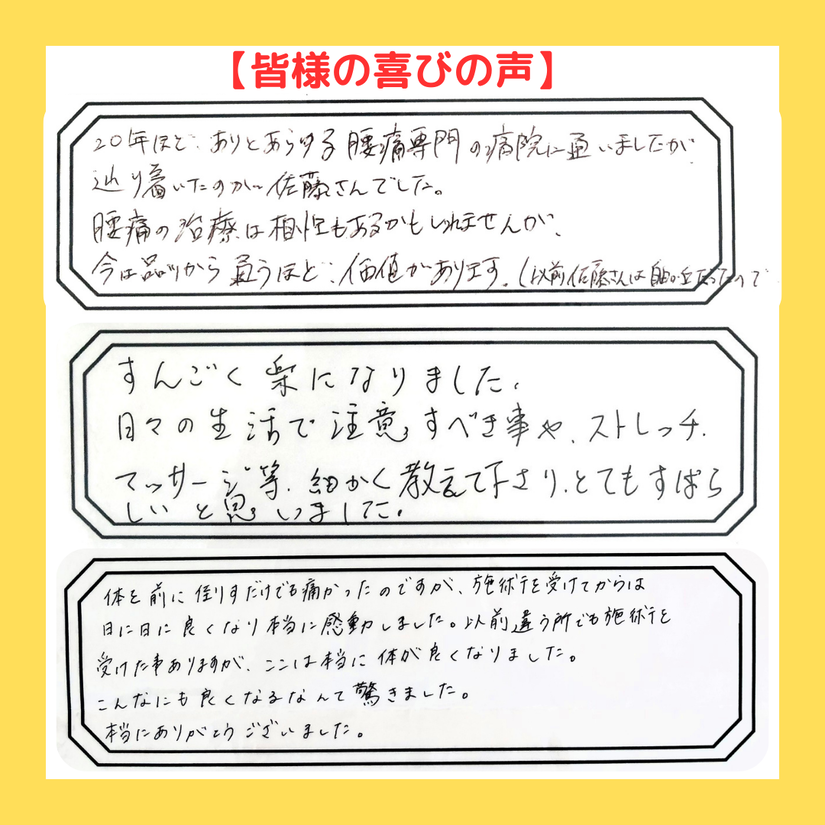 【皆様の喜びの声】
20年ほど、ありとあらゆる腰痛専門の病院に通いましたが、
辿り着いたのが佐藤さんでした。
腰痛の治療は相性もあるかもしれませんが、
今は品川から通うほど、価値があります。(以前佐藤さんは自由が丘だったので
すんごく楽になりました。
日々の生活で注意すべき事や、ストレッチ、
マッサージ等、細かく教えて下さり、とてもすばら
しいと思いました。
体を前に倒すだけでも痛かったのですが、施術を受けてからは
日に日に良くなり本当に感動しました。以前違う所でも施術を
受けた事ありますが、ここは本当に体が良くなりました。
こんなにも良くなるなんて驚きました。
本当にありがとうございました。